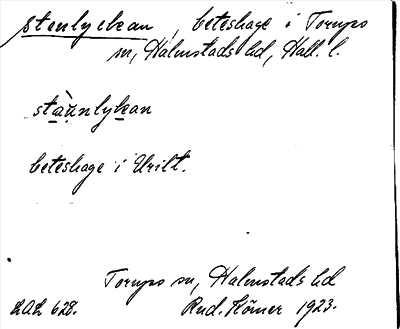 stenlyckan, beteshage i Torups
sn, Halmstads hd, Hall. l.
stä̀nlykan
beteshage i Urilt.
Torups sn, Halmstads hd
LAL 628. Rud. Körner 1923.